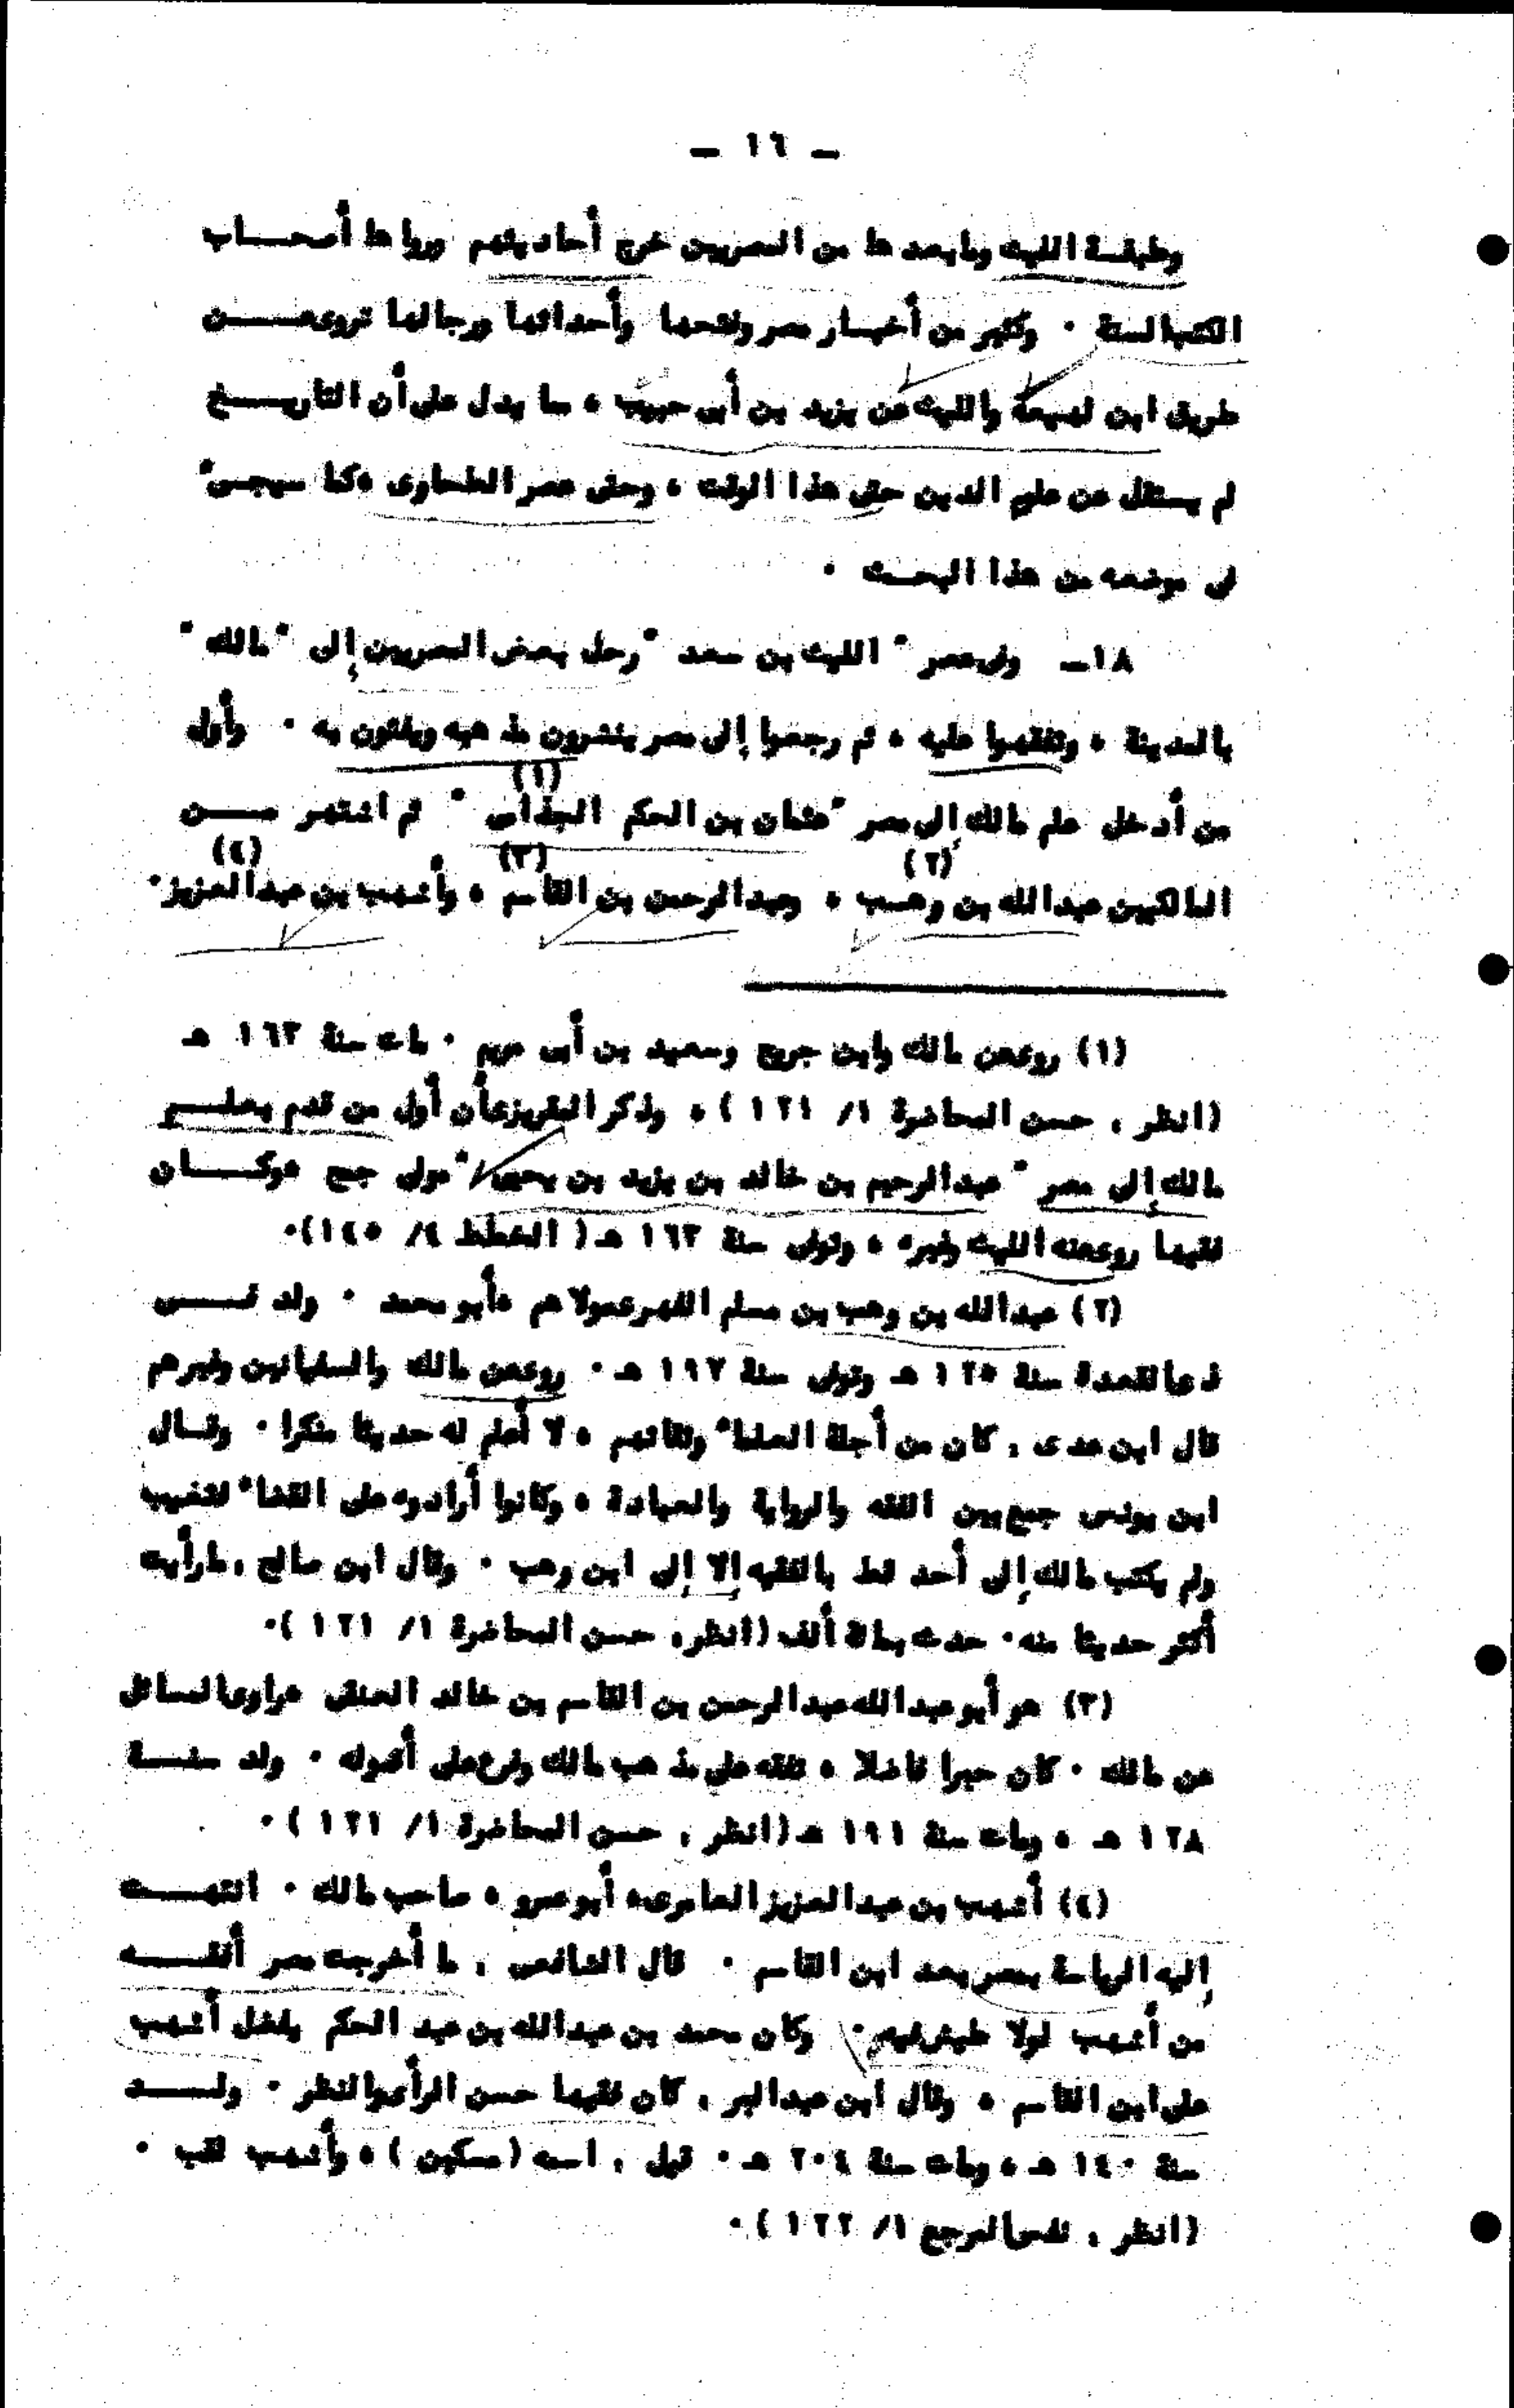 ـ ١٦ ـ
وطبقة الليث وما بعدها من المصريين خرج أحاديثهم ورواها أصحاب
الكتب الستة ٠ وكثير من أخبار مصر وفتحها وأحداثها ورجالها تروى عن
طريق ابن لهيعة والليث عن يزيد بن أبى حبيب ، مما يدل على أن التاريخ
لم يستقل عن علوم الدين حتى هذا الوقت ، وحتى عصر الطحاوى ، كما سيجىء
فى موضعه من هذا البحث ٠
١٨ـ وفى عصر " الليث بن سعد " رحل بعض المصريين إلى " مالك "
بالمدينة ، وتفقهوا عليه ، ثم رجعوا إلى مصر ينشرون مذهبه ويفتون به ٠ وأول
من أدخل علم مالك إلى مصر " عثمان بن الحكم الجذامى (١) " ثم اشتهر من
المالكيين عبدالله بن وهب (٢) ، وعبدالرحمن بن القاسم (٣) ، وأشهب بن عبدالعزيز (٤)٠
(١) روى عن مالك وابن جريج وسعيد بن أبى مريم ٠ مات سنة ١٦٣ هـ
(انظر : حسن المحاضرة ١/ ١٢١) ، وذكر المقريزى أن أول من قدم بعلم
مالك إلى مصر " عبدالرحيم بن خالد بن يزيد بن يحيى " مولى جمح ، وكان
فقيها روى عنه الليث وغيره ، وتوفى سنة ١٦٣ هـ ( الخطط ٤/ ١٤٥)٠
(٢) عبدالله بن وهب بن مسلم الفهرى مولاهم ، أبو محمد ٠ ولد فى
ذى القعدة سنة ١٢٥ هـ وتوفى سنة ١٩٧ هـ ٠ روى عن مالك والسفيانين وغيرهم
قال ابن عدى : كان من أجلة العلماء وثقاتهم ، لا أعلم له حديثا منكرا ٠ وقال
ابن يونس جمع بين الفقه والرواية والعبادة ، وكانوا أرادوه على القضاء فتغيب
ولم يكتب مالك إلى أحد قط بالفقيه إلا إلى ابن وهب ٠ وقال ابن صالح : ما رأيت
أكثر حديثا منه ٠ حدث بمائة ألف (انظر: حسن المحاضرة ١/ ١٢١ )٠
(٣) هو أبو عبدالله عبدالرحمن بن القاسم بن خالد العتقى ، راوى المسائل
عن مالك ٠ كان حبرا فاضلا ، تفقه على مذهب مالك وفرع على أصوله ٠ ولد سنة
١٢٨ هـ ، ومات سنة ١٩١ هـ (انظر : حسن المحاضرة ١/ ١٢١ )٠
(٤) أشهب بن عبدالعزيز العامرى ، أبو عمرو ، صاحب مالك ٠ انتهت
إليه الرياسة بمصر بعد ابن القاسم ٠ قال الشافعى : ما أخرجت مصر أفقه
من أشهب لولا طيش فيه ٠ وكان محمد بن عبدالله بن عبد الحكم يفضل أشهب
على ابن القاسم ، وقال ابن عبدالبر : كان فقيها حسن الرأى والنظر ٠ ولد
سنة ١٤٠ هـ ، ومات سنة ٢٠٤ هـ ٠ قيل : اسمه (مسكين) ، وأشهب لقب ٠
(انظر : نفس المرجع ١/ ١٢٢ )٠